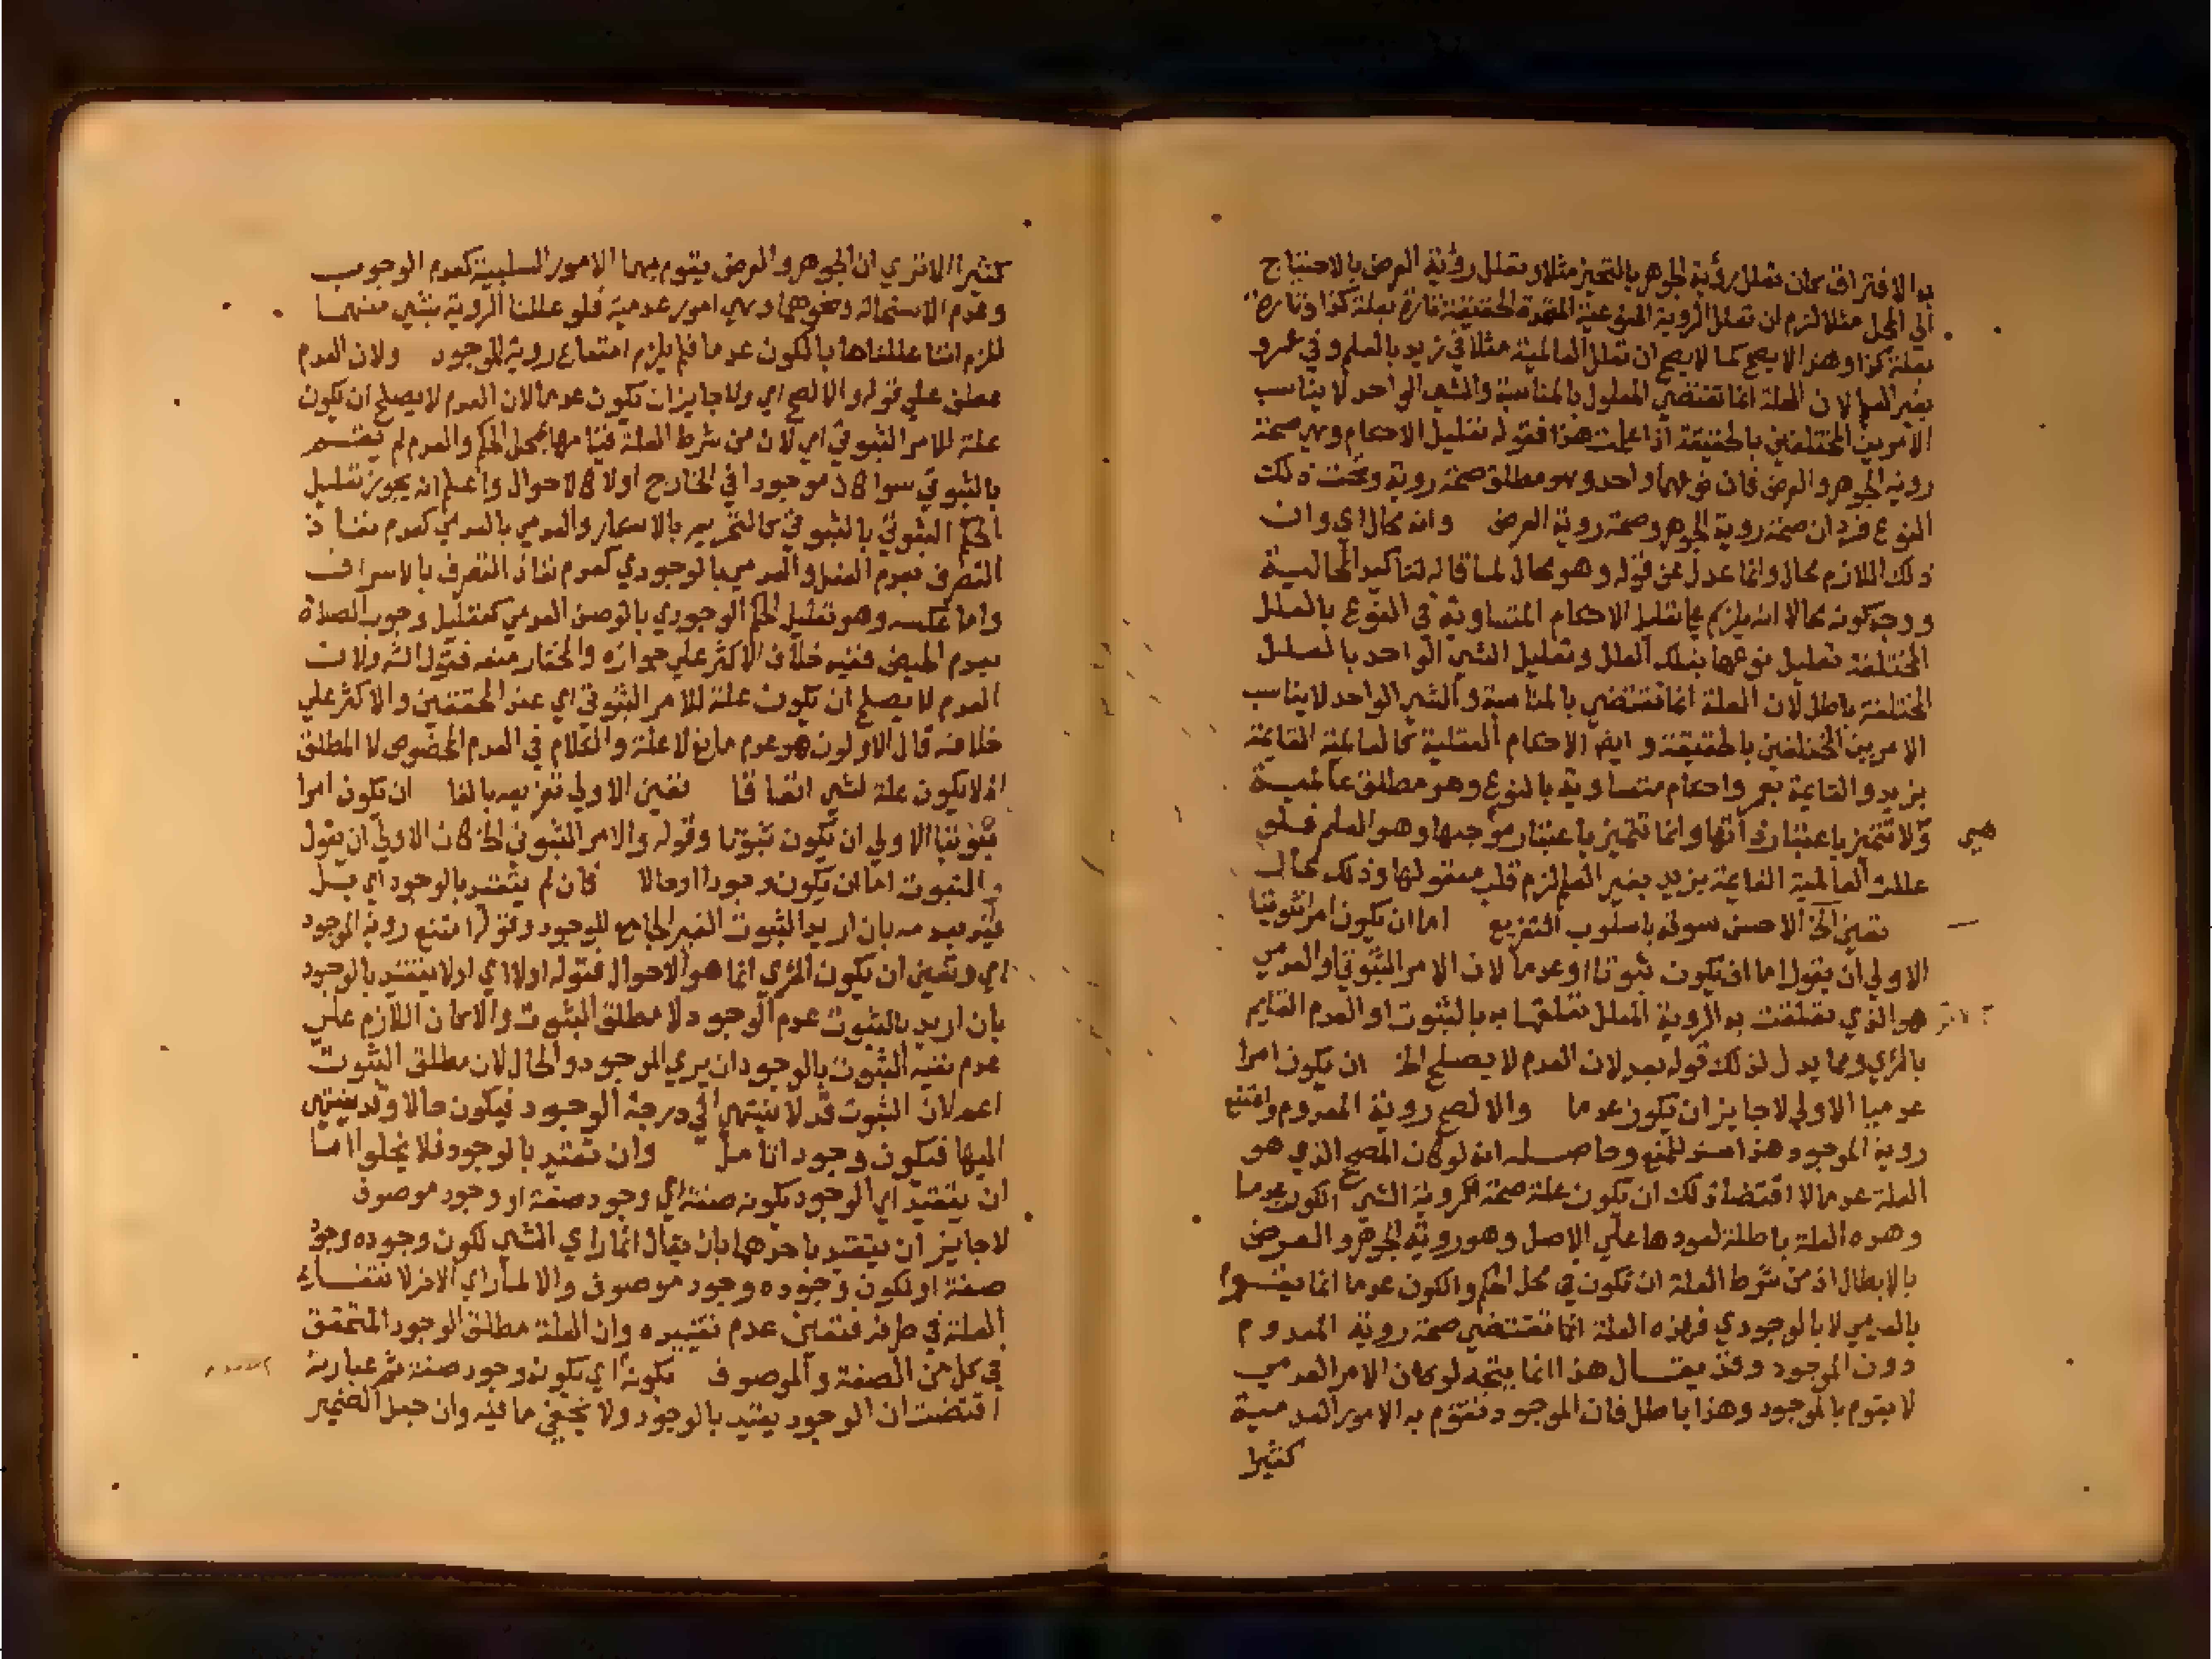 به الافتراق كان تعلل رؤية الجوهر بالتحيز مثلا وتعلل رؤية العرض بالاحتياج
الي المحل مثلا لزم ان تعلل الروية النوعية المتحدة الحقيقة تارة بعلة كذا وتارة
بعلة كذا وهذا لا يصح كما لا يصح ان تعلل العالمية مثلا في زيد بالعلم وفي عمرو
بغير العلم لان العلة انما تقتضي المعلول بالمناسبة والشي الواحد لا يناسب
الامرين المختلفين بالحقيقة اذا علمت هذا فقوله تعليل الاحكام وهي صحة
روية الجوهر والعرض فان نوعهما واحد وهو مطلق صحة روية وتحت ذلك
النوع فردان صحة روية الجوهر وصحة روية العرض وانه محال اي وان
ذلك اللازم محال وانما عدل عن قوله وهو محال لما قاله لتاكيد المحالية
ووجه كونه محالا انه يلزم عما تعليل الاحكام المتساوية في النوع بالعلل
المختلفة تعليل نوعها بتلك العلل وتعليل الشي الواحد بالعلل
المختلفة باطل لان العلة انما تقتضي بالمناسبة والشي الواحد لا يناسب
الامرين المختلفين بالحقيقة وايضا الاحكام العقلية كالعالمية القايمة
بزيد والقايمة بعمرو احكام متساوية بالنوع وهو مطلق عالمية
ولا تتميز باعتبار ذاتها وانما تتميز باعتبار موجبها وهو العلم فلو
هي
عللت العالمية القايمة بزيد بغير العلم لزم قلب معقولها وذلك محال
تعين الخ الاحسن سوقه باسلوب التفريع اما ان يكون امرا ثبوتيا
الاولي ان يقول اما ان يكون ثبوتا او عدما لان الامر الثبوتي او العدمي
هو الذي تعلقت به الروية المعلل تعلقها به بالثبوت او العدم القايم
بالمرئي ومما يدل لذلك قوله بعد لان العدم لا يصلح الخ ان يكون امرا
عدميا الاولي لا جايز ان يكون عدما والا لصح روية المعدوم وامتنع
روية الموجود هذا سند للمنع وحاصله انه لو كان المصحح الذي هو
العلة عدما لا اقتضا ذلك ان يكون علة صحة روية الشي الكون عدما
وهذه العلة باطلة لعودها علي الاصل وهو روية الجوهر والعرض
بالابطال اذ من شرط العلة ان تكون في محل الحكم والكون عدما انما يقوم
بالعدمي لا بالوجودي فهذه العلة انما تقتضي صحة روية المعدوم
دون الموجود وقد يقال هذا انما يتجه لو كان الامر العدمي
لا يقوم بالموجود وهذا باطل فان الموجود تقوم به الامور العدمية
كثيرا
كثيرا الا تري ان الجوهر والعرض يقوم بهما الامور السلبية كعدم الوجوب
وعدم الاستحالة ونحوهما وهي امور عدمية فلو عللنا الروية بشي منهما
للزم اننا عللناها بالكون عدما فلم يلزم امتناع روية الموجود ولان العدم
معطوف علي قوله والا لصح اي ولا جايز ان يكون عدما لان العدم لا يصلح ان يكون
علة للامر الثبوتي اي لان من شرط العلة قيامها بمحل الحكم والعدم لم يقم
بالثبوتي سوا كان موجودا في الخارج اولا كالاحوال واعلم انه يجوز تعليل
الحكم الثبوتي بالثبوتي كالتحريم بالاسكار والعدمي بالعدمي كعدم نفاذ
التصرف بعدم العقل والعدمي بالوجودي كعدم نفاذ التصرف بالاسراف
واما عكسه وهو تعليل الحكم الوجودي بالوصف العدمي كتعليل وجوب الصلاة
بعدم الحيض ففيه خلاف الاكثر علي جوازه والمختار منعه فقول الشه ولان
العدم لا يصلح ان يكون علة للامر الثبوتي اي عند المحققين والاكثر علي
خلافه قال الاولون هو عدم مانع لا علة والكلام في العدم المخصوص لا المطلق
اذ لا يكون علة لشي اتفاقا تعين الاولي تفريعه بالفا ان يكون امرا
ثبوتيا الاولي ان يكون ثبوتا وقوله والامر الثبوتي الخ كان الاولي ان يقول
والثبوت اما ان يكون وجودا او حالا فان لم يتقيد بالوجود اي بل
قيد بعدمه بان اريد الثبوت الغير الجامع للوجود وقوله امتنع روية الموجود
اي وتعين ان يكون المرئي انما هو الاحوال فقوله اولا اي اولا يتقيد بالوجود
بان اريد بالثبوت عدم الوجود لا مطلق الثبوت والا كان اللازم علي
عدم تقيد الثبوت بالوجود ان يري الموجود والحال لان مطلق الثبوت
اعم لان الثبوت قد لا ينتهي الي درجة الوجود فيكون حالا وقد ينتهي
اليها فيكون وجودا تامل وان تقيد بالوجود فلا يخلوا اما
ان يتقيد اي الوجود بكونه صفة اي وجود صفة او وجود موصوف
لا جايز ان يتقيد باحدهما بان يقال انما راي الشي لكون وجوده وجود
صفة او لكون وجوده وجود موصوف والا لما راي الاخر لانتفاء
العلة في طرفه فتعين عدم تقييده وان العلة مطلق الوجود المتحقق
في كل من الصفة والموصوف بكونه اي بكونه وجود صفة ثم عبارته
اقتضت ان الوجود يقيد بالوجود ولا يخفي ما فيه وان جعل الضمير